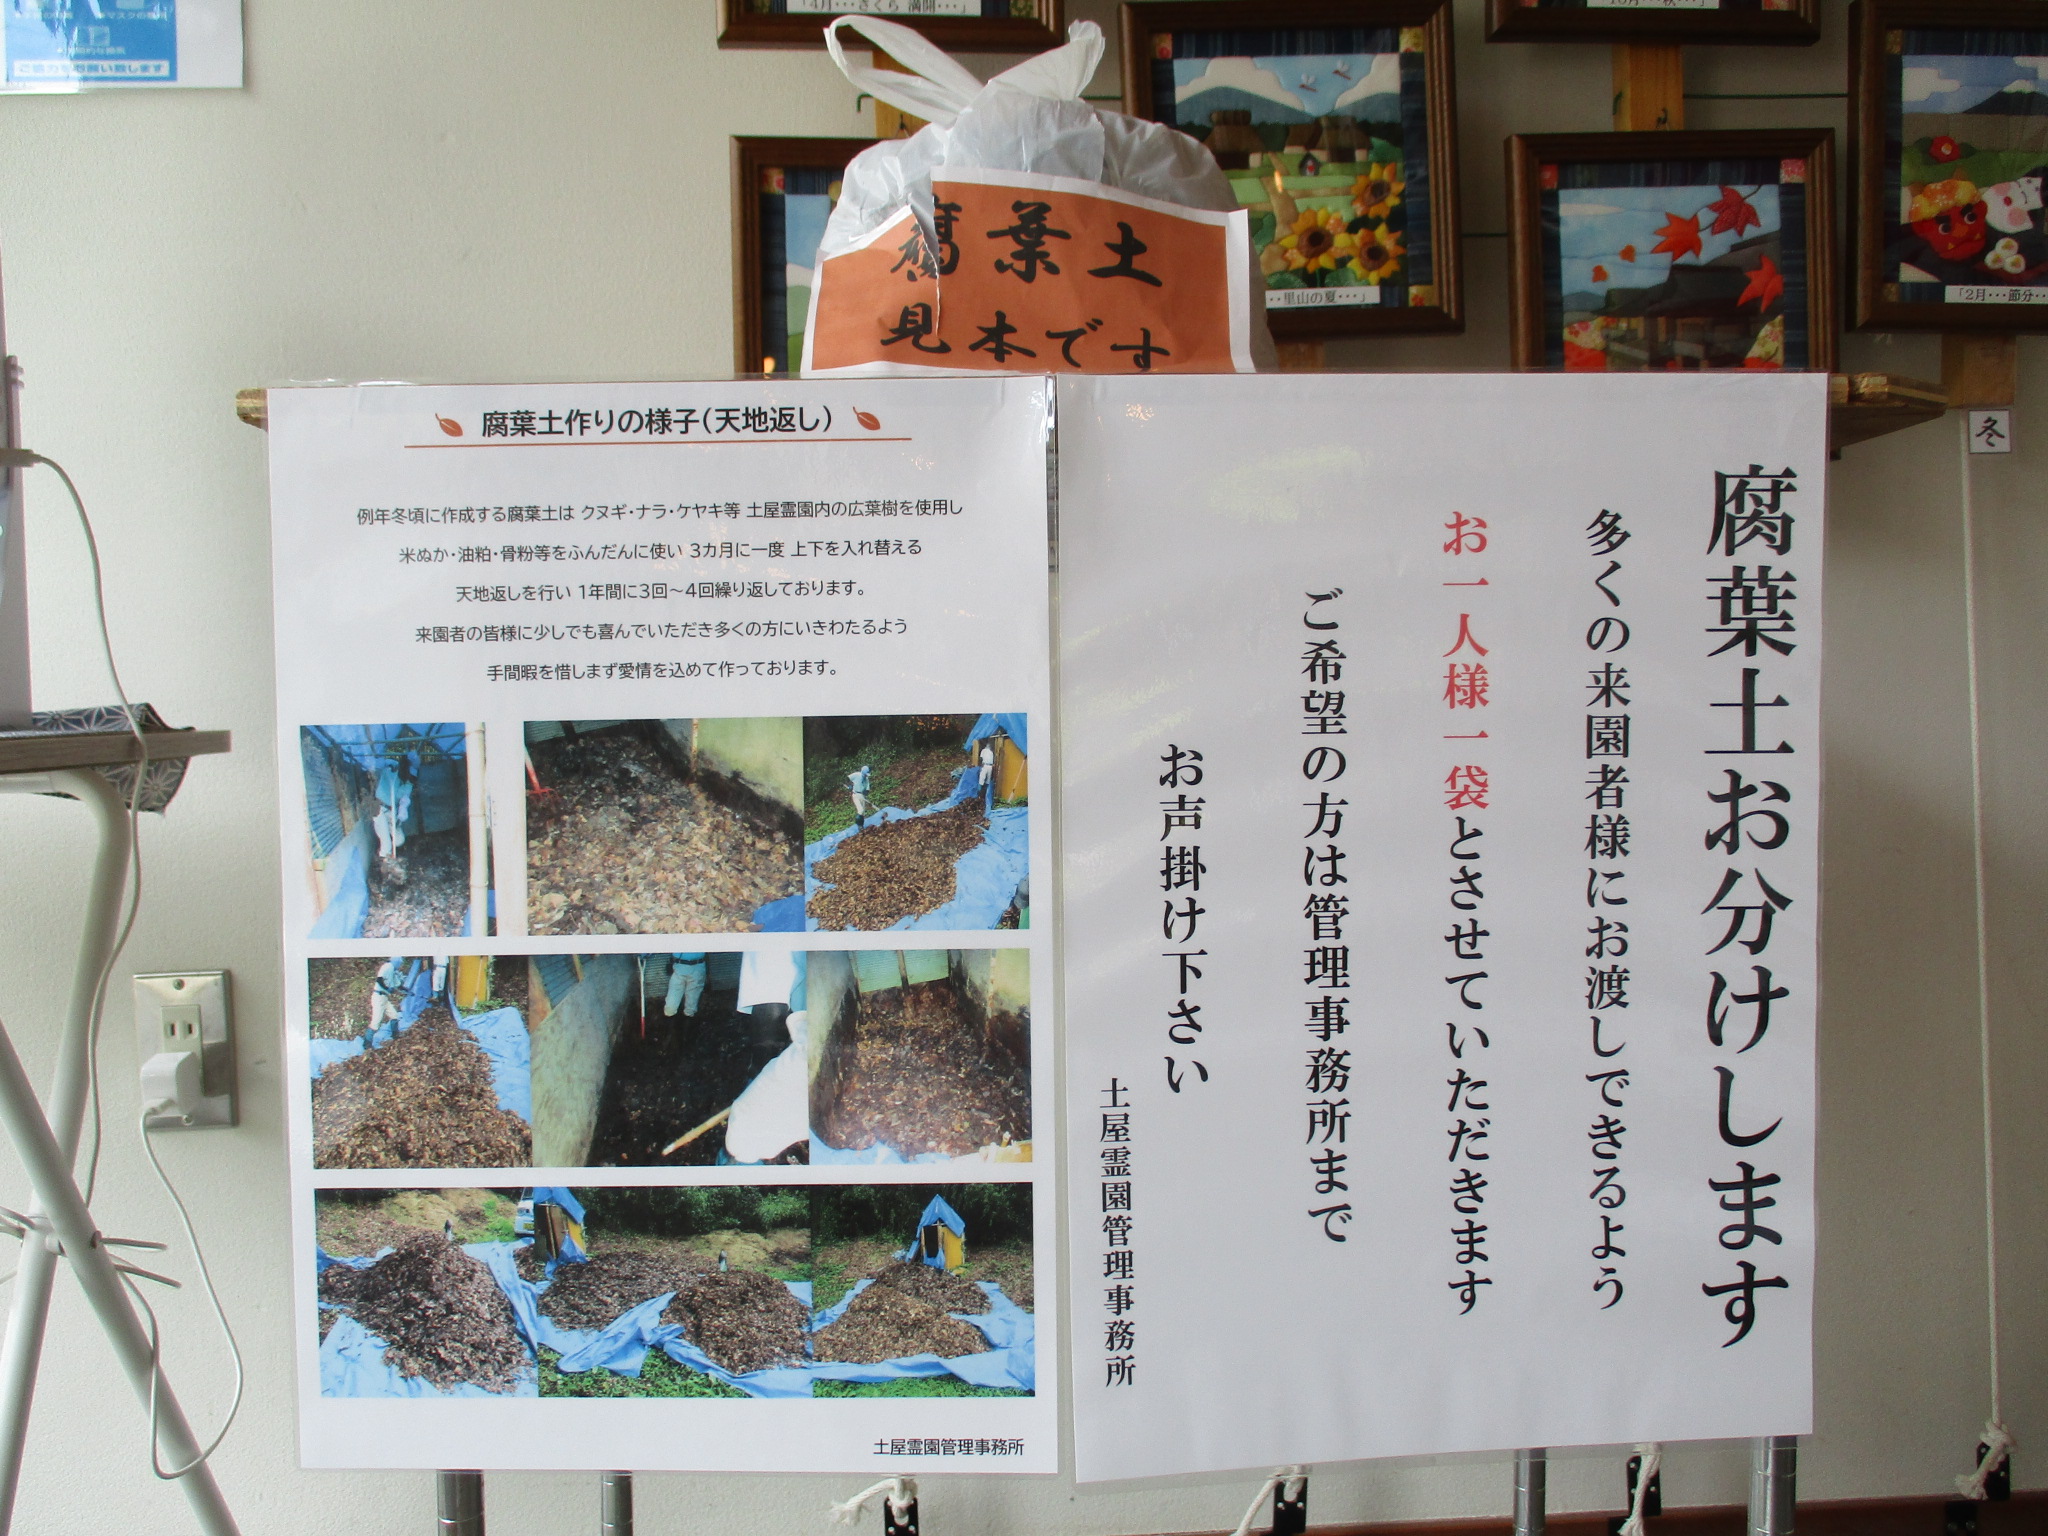 ご協力をお願い致します
「4月・・・さくら 満開・・・」
腐葉土
見本です
・・里山の夏・・・」
「2月・・・節分・・
冬
腐葉土作りの様子(天地返し)
例年冬頃に作成する腐葉土は クヌギ・ナラ・ケヤキ等 土屋霊園内の広葉樹を使用し
米ぬか・油粕・骨粉等をふんだんに使い 3カ月に一度 上下を入れ替える
天地返しを行い 1年間に3回~4回繰り返しております。
来園者の皆様に少しでも喜んでいただき多くの方にいきわたるよう
手間暇を惜しまず愛情を込めて作っております。
土屋霊園管理事務所
腐葉土お分けします
多くの来園者様にお渡しできるよう
お一人様一袋とさせていただきます
ご希望の方は管理事務所まで
お声掛け下さい
土屋霊園管理事務所